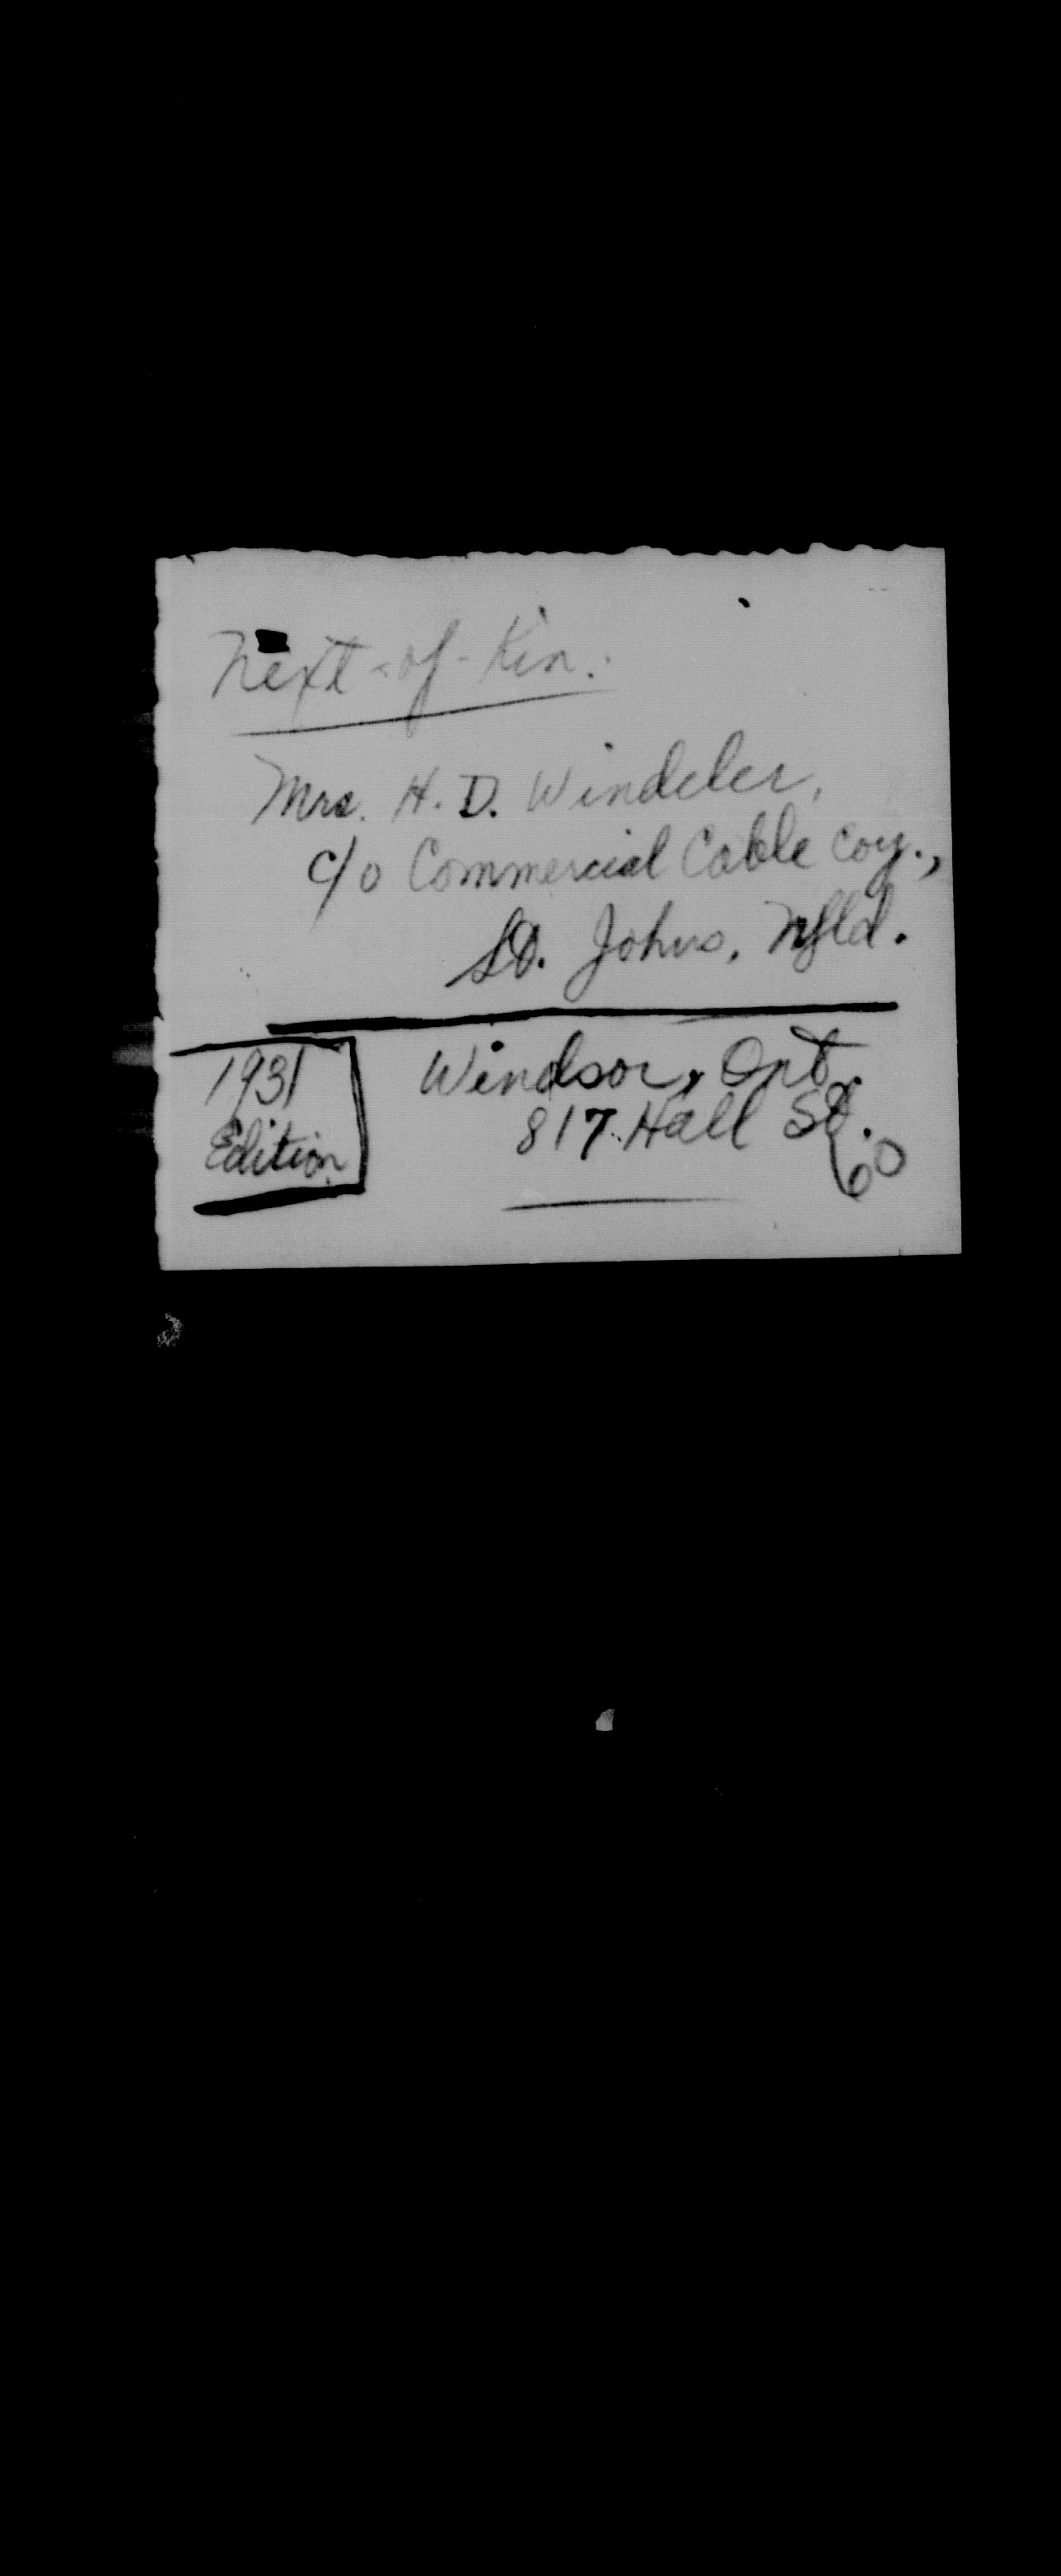 Next-of-Kin.
Mrs. H. D. Windeler,
c/o Commercial Cable Coy.,
St. Johns, Nfld.
1931
Edition
Windsor, Ont.
817 Hall St.
60